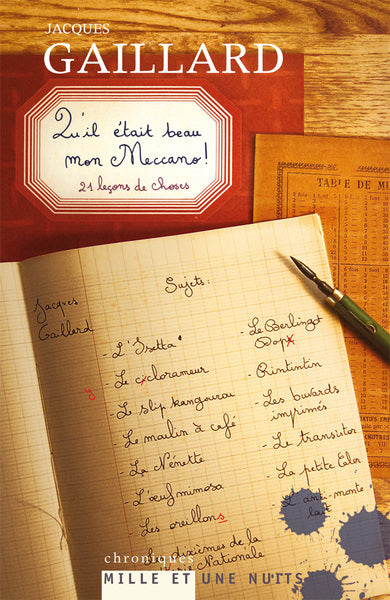 JACQUES
GAILLARD
Qu'il était beau
mon Meccano!
21 leçons de choses
TABLE DE MU
Sujets:
Jacques
Gaillard
- L'Isetta
- Le ciclorameur
y
- Le slip kangourou
Le moulin à café
- La Nénette
- L'œuf mimosa
- Les oreillons
dixièmes de la
ie Nationale
- Le Berlingot
Dop
- Rintintin
- Les buvards
imprimés
- Le transistor
- La petite Eiler
- L'anti-monte-
lait
chroniques
MILLE ET UNE NUITS